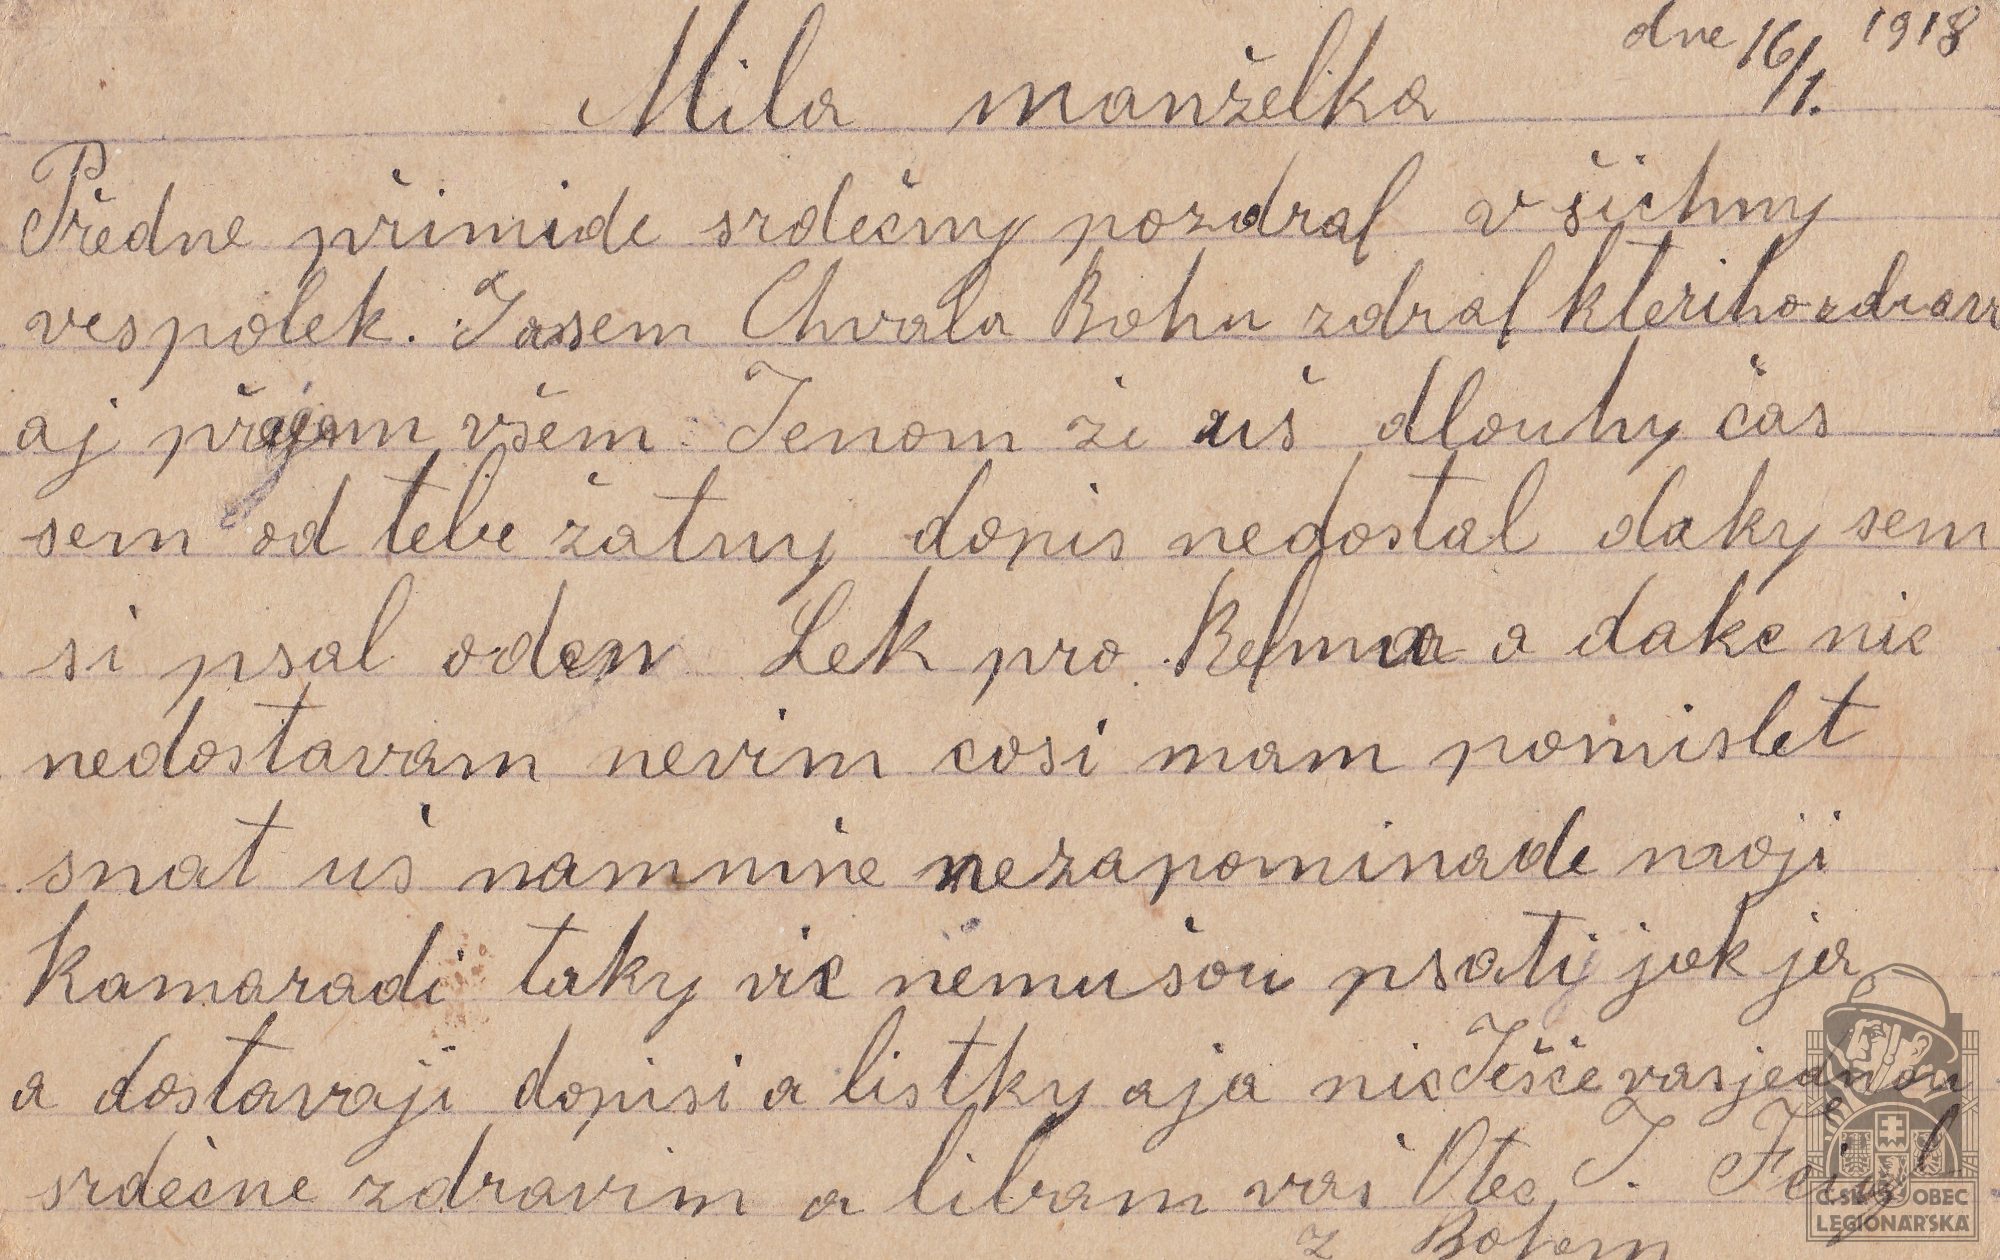 dne 16/1. 1918
Mila manželka
Předne přimide srdečny pozdraf všichny
vespolek. Jasem Chvala Bohu zdraf kteriho zdravi
aj přejam všem Jenom že už dlouhy čas
sem od tebe žatny dopis nedostal daky sem
si psal oden Lek pro a dake nic
nedostavam nevim cosi mam pomislet
snat uš namnine nezapominade moji
kamaradi taky vic nemušou psati jak ja
a dostavaji dopisi a listky aja nic Ješče vasjednou
srdečne zdravim a libam vaš Otec J. Feigl
z Bohem
Č.SL. OBEC
LEGIONÁŘSKÁ